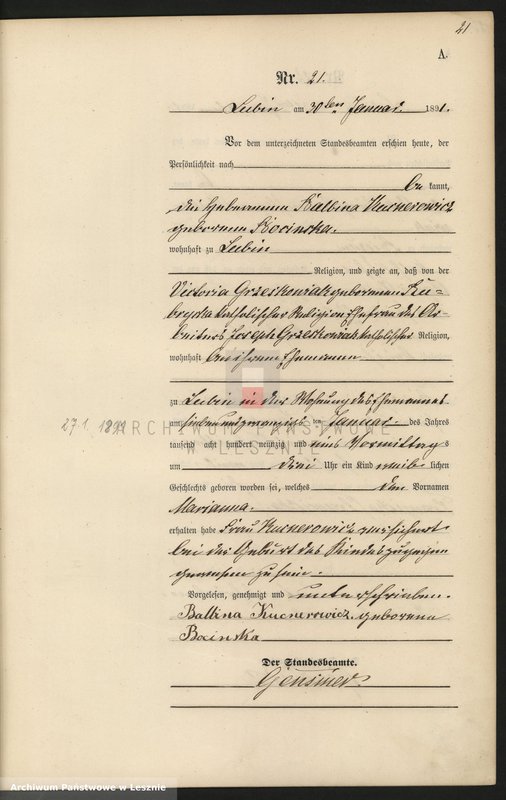 21
A.
Nr. 21.
Lubin am 30ten Januar 1891.
Vor dem unterzeichneten Standesbeamten erschien heute, der
Persönlichkeit nach
be kannt,
die Hebeamme Balbina Kucnerowicz
geborene Bocinska.
wohnhaft zu Lubin
Religion, und zeigte an, daß von der
Victoria Grzeskowiak geborenen Ku-
katholischer Religion Ehefrau des Ar-
beiters Joseph Grzeskowiak katholischer Religion,
wohnhaft bei ihrem Ehemanne
zu Lubin in der Wohnung des Ehemannes
am siebenundzwanzigsten Januar des Jahres
tausend acht hundert neunzig und eins Vormittag s
um drei Uhr ein Kind weib lichen
Geschlechts geboren worden sei, welches den Vornamen
Marianna.
erhalten habe Frau Kucnerowicz versichert
bei der Geburt des Kindes zugegen
gewesen zu sein.
Vorgelesen, genehmigt und unterschrieben.
Balbina Kucnerowicz geborene
Bocinska
Der Standesbeamte.
Gensmer
27.1.1891
ARCHIWUM PAŃSTWOWE
W LESZNIE
Archiwum Państwowe w Lesznie